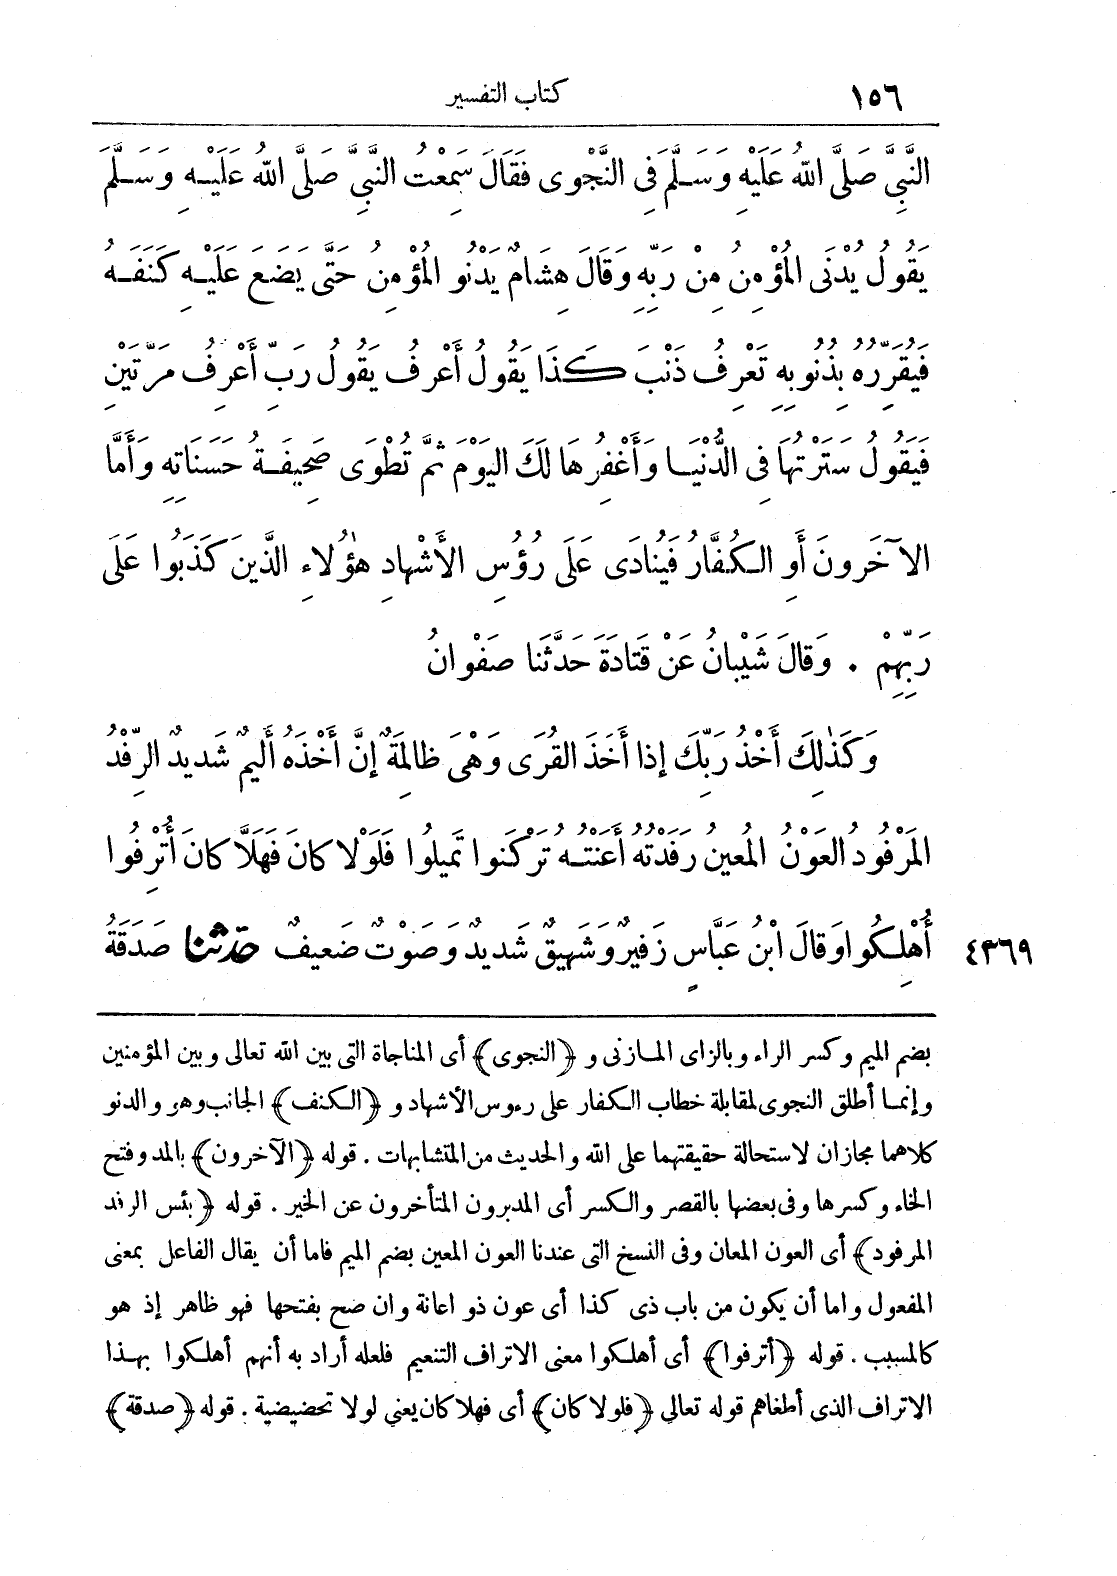 ١٥٦ كتاب التفسير
النَّبِيَّ صَلَّى اللهُ عَلَيْهِ وَسَلَّمَ فِى النَّجْوَى فَقَالَ سَمِعْتُ النَّبِيَّ صَلَّى اللهُ عَلَيْهِ وَسَلَّمَ
يَقُولُ يُدْنَى المُؤْمِنُ مِنْ رَبِّهِ وَقَالَ هِشَامٌ يَدْنُو المُؤْمِنُ حَتَّى يَضَعَ عَلَيْهِ كَنَفَهُ
فَيُقَرِّرُهُ بِذُنُوبِهِ تَعْرِفُ ذَنْبَ كَذَا يَقُولُ أَعْرِفُ يَقُولُ رَبِّ أَعْرِفُ مَرَّتَيْنِ
فَيَقُولُ سَتَرْتُهَا فِى الدُّنْيَا وَأَغْفِرُهَا لَكَ اليَوْمَ ثُمَّ تُطْوَى صَحِيفَةُ حَسَنَاتِهِ وَأَمَّا
الآخَرُونَ أَوِ الكُفَّارُ فَيُنَادَى عَلَى رُؤُسِ الأَشْهَادِ هٰؤُلاءِ الَّذِينَ كَذَبُوا عَلَى
رَبِّهِمْ . وَقَالَ شَيْبَانُ عَنْ قَتَادَةَ حَدَّثَنَا صَفْوَانُ
وَكَذٰلِكَ أَخْذُ رَبِّكَ إِذَا أَخَذَ القُرَى وَهْىَ ظَالِمَةٌ إِنَّ أَخْذَهُ أَلِيمٌ شَدِيدٌ الرِّفْدُ
المَرْفُودُ العَوْنُ المُعِينُ رَفَدْتُهُ أَعَنْتُهُ تَرْكَنُوا تَمِيلُوا فَلَوْلا كَانَ فَهَلَّا كَانَ أُتْرِفُوا
٤٣٦٩ أُهْلِكُوا وَقَالَ ابْنُ عَبَّاسٍ زَفِيرٌ وَشَهِيقٌ شَدِيدٌ وَصَوْتٌ ضَعِيفٌ حَدَّثَنَا صَدَقَةُ
بضم الميم وكسر الراء وبالزاى المازنى و﴿النجوى﴾ أى المناجاة التى بين الله تعالى وبين المؤمنين
وإنما أطلق النجوى لمقابلة خطاب الكفار على رءوس الأشهاد و﴿الكنف﴾ الجانب وهو والدنو
كلاهما مجازان لاستحالة حقيقتهما على الله والحديث من المتشابهات . قوله ﴿الآخرون﴾ بالمد وفتح
الخاء وكسرها وفى بعضها بالقصر والكسر أى المدبرون المتأخرون عن الخير . قوله ﴿بئس الرفد
المرفود﴾ أى العون المعان وفى النسخ التى عندنا العون المعين بضم الميم فاما أن يقال الفاعل بمعنى
المفعول واما أن يكون من باب ذى كذا أى عون ذو اعانة وان صح بفتحها فهو ظاهر إذ هو
كالمسبب . قوله ﴿أترفوا﴾ أى أهلكوا معنى الاتراف التنعيم فلعله أراد به أنهم أهلكوا بهذا
الاتراف الذى أطغاهم قوله تعالى ﴿فلولا كان﴾ أى فهلا كان يعني لولا تحضيضية . قوله ﴿صدقة﴾